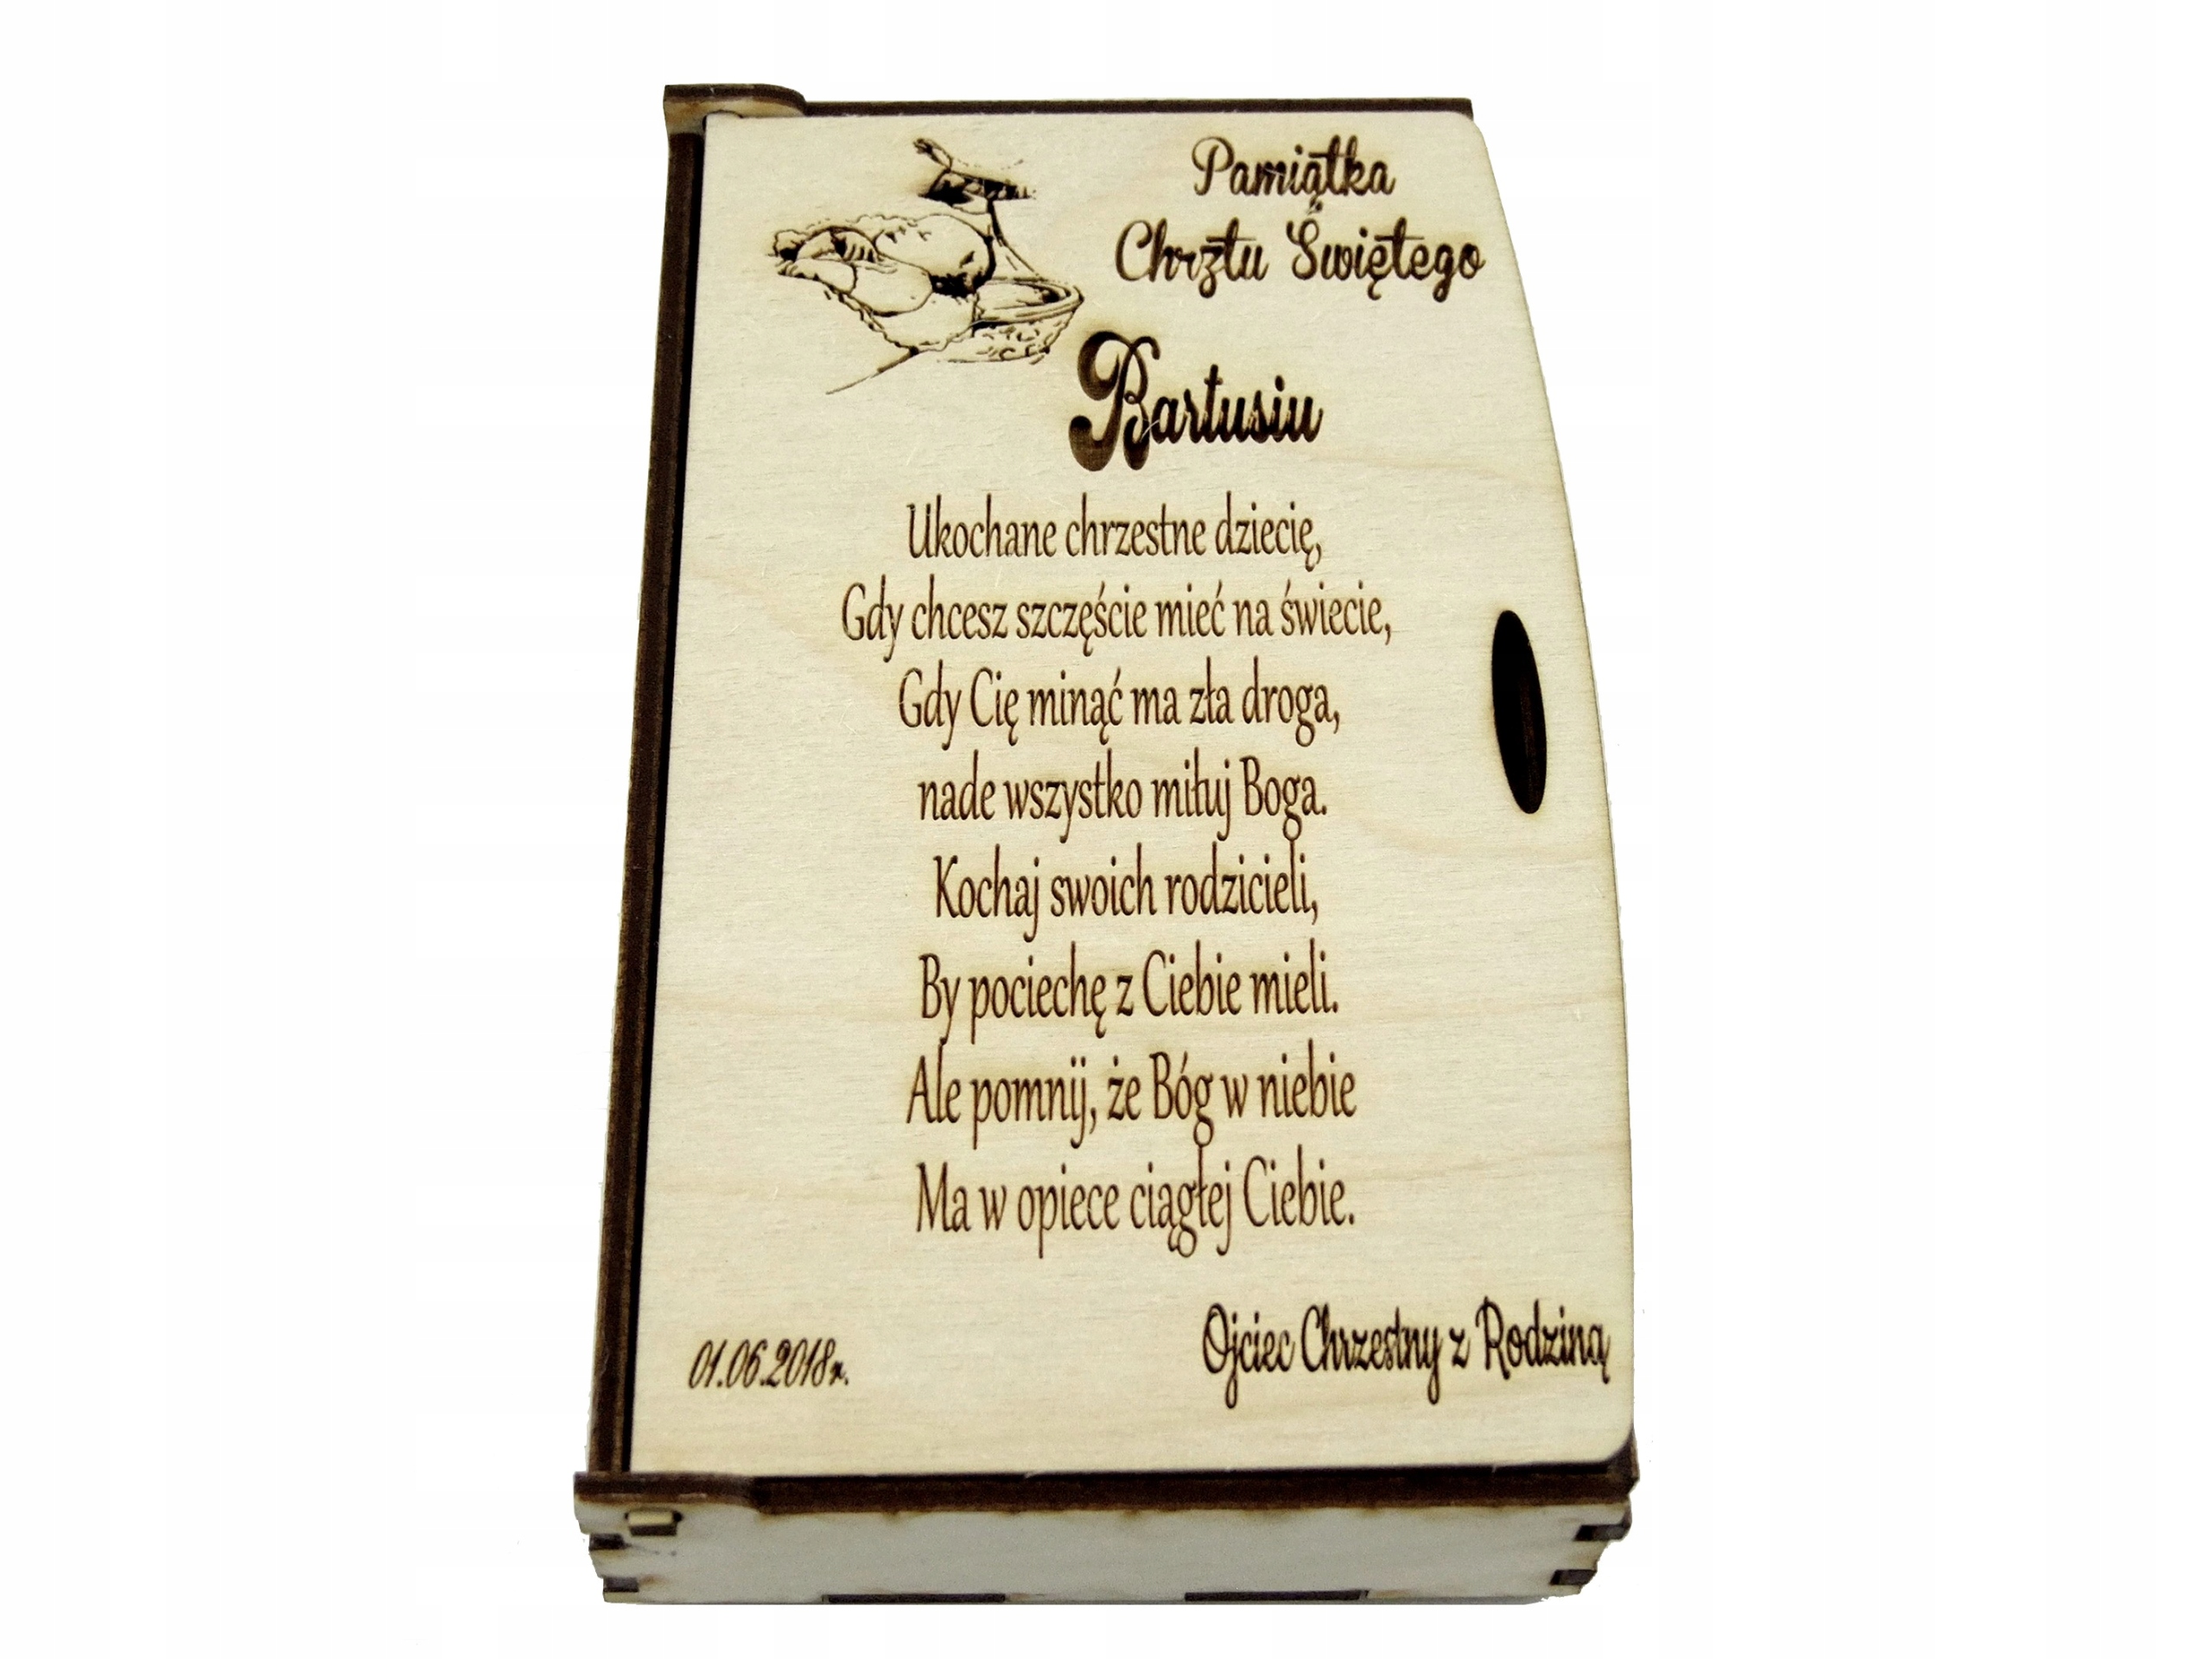 Pamiątka
Chrztu Świętego
Bartusiu
Ukochane chrzestne dziecię,
Gdy chcesz szczęście mieć na świecie,
Gdy Cię minąć ma zła droga,
nade wszystko miłuj Boga.
Kochaj swoich rodzicieli,
By pociechę z Ciebie mieli.
Ale pomnij, że Bóg w niebie
Ma w opiece ciągłej Ciebie.
Ojciec Chrzestny z Rodziną
01.06.2018r.